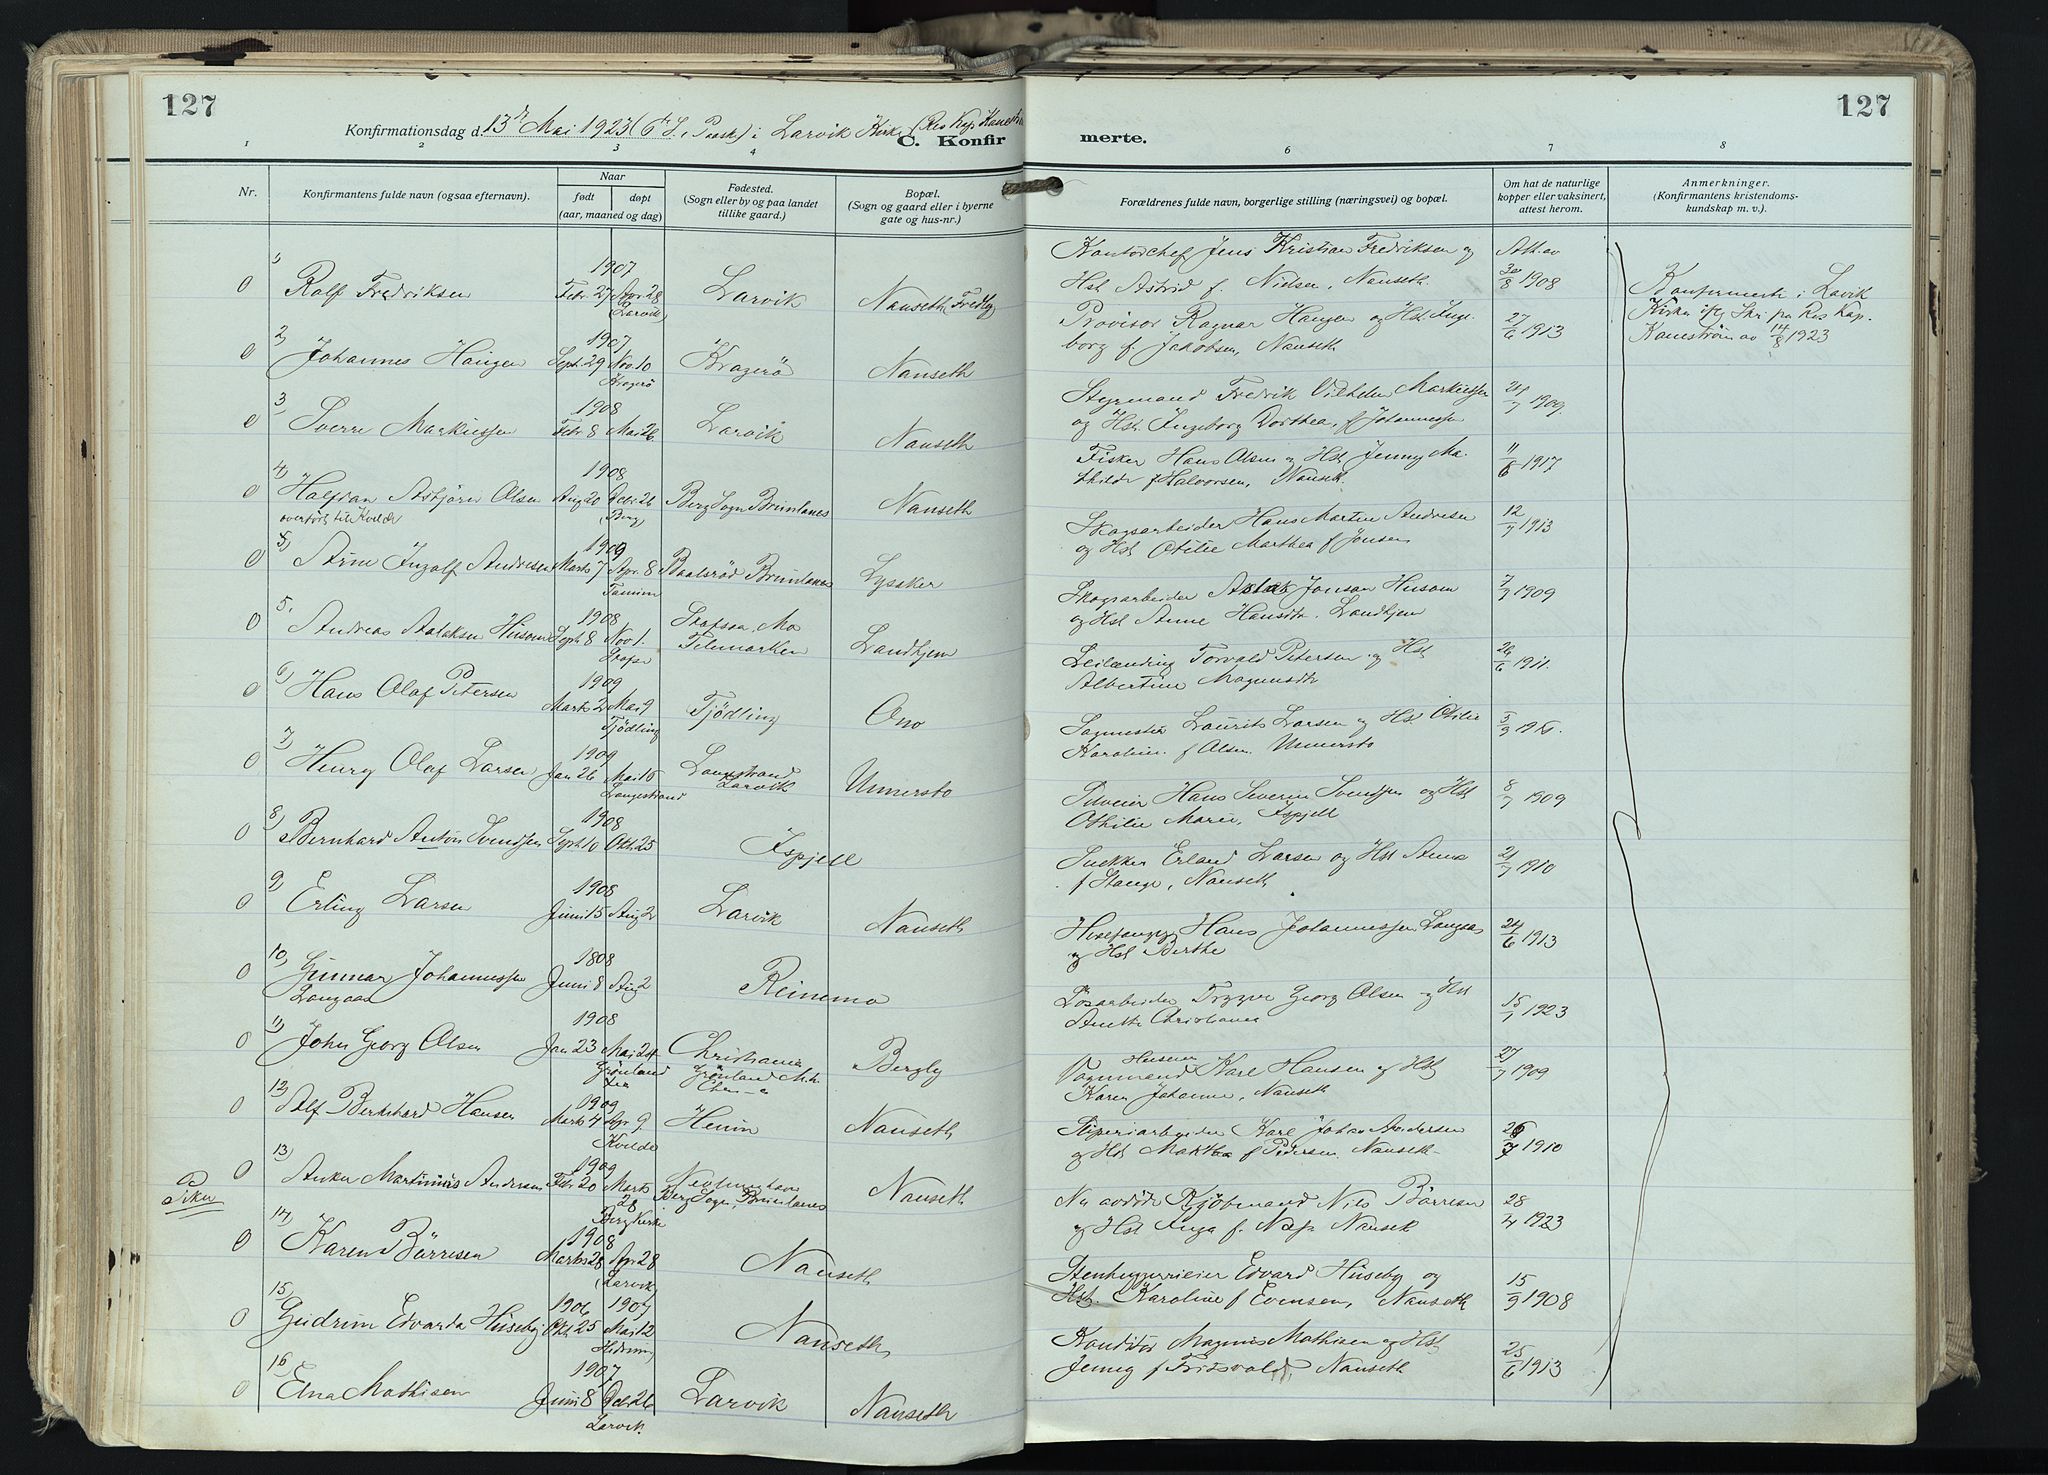 127
127
Konfirmationsdag d. 13de Mai 1923 (6te S. i Paask) i Larvik Kirke (Res Kap Kane
C. Konfir merte.
1 2 3 4 6 7 8
Nr.
Konfirmantens fulde navn (ogsaa efternavn).
Naar
født døpt
(aar, maaned og dag)
Fødested.
(Sogn eller by og paa landet
tillike gaard.)
Bopæl.
(Sogn og gaard eller i byerne
gate og hus-nr.)
Forældrenes fulde navn, borgerlige stilling (næringsvei) og bopæl.
Om hat de naturlige
kopper eller vaksinert,
attest herom.
Anmerkninger.
(Konfirmantens kristendoms-
kundskap m. v.).
1) 1907
0 Rolf Fredriksen Febr. 27 Apr 28 Larvik Nanseth (Fredly)
(Larvik)
Kontorchef Jens Kristian Fredriksen og
Hst Astrid f. Nielsen, Nanseth.
Att. av
30/8 1908
Konfirmerte i Lavik
Kirke iflg Skr. fra Res Kap.
Kanestrøm av 14/8 1923
2) 1907
0 Johannes Haugen Sept. 29 Nov. 10 Kragerö Nanseth
Kragerö
Provisor Ragnar Haugen og Hst Inge
borg f. Jakobsen, Nanseth
27/6 1913
3 1908
0 Sverre Markussen Febr 8 Mai 26 Larvik Nanseth
Styrmand Fredrik Vilhelm Markussen
og Hst. Ingeborg Dorthea f Johannessen
24/7 1909
4) 1908
0 Halfdan Asbjörn Olsen Aug 20 Octr 26 Berg Sogn Brunlanes Nanseth
overført til Kvelde (Berg)
Fisker Hans Olsen og Hst Jenny Ma
thilde f Halvorsen, Nanseth.
11/6 1917
5) 1909
0 Arne Ingolf Andresen Marts 7 Apr. 8 Baalsröd Brunlanes Lysaker
Tanum
Skogsarbeider Hans Martin Andresen
og Hst Otilie Marthea f Jonsen
12/7 1913
5. 1908
0 Andreas Aslaksen Husom Sept. 8 Nov 1. Skafsaa, Mo Landhjem
Telemarken
Skogsarbeider Aslak Jonson Husom
og Hst Anne Hansdtr. Landhjem
7/7 1909
6) 1909
0 Hans Olaf Petersen Mark 2 Mai 9 Tjödling Ono
Tjödling
Leilænding Torvald Petersen og Hst
Albertine Magnusdtr
26/6 1911.
7) 1909
0 Henry Olaf Larsen Jan 26 Mai 16 Langestrand Unnersbo
Larvik
Langestrand
Sagmester Laurits Larsen og Hst Otilie
Karoline f Olsen. Unnersbo
8) 1908
0 Bernhard Anton Svendsen Sept. 10 Okt. 25 Ispjell
Hans Severin Svendsen og Hst
Othilie Marie, Ispjell
8/7 1909
9) 1908
0 Erling Larsen Juni 15 Aug 2 Larvik Nanseth
Snekker Erland Larsen og Hst Anna
f Stange, Nanseth
21/7 1910
10) 1808
0 Gunnar Johannessen Juni 8 Aug 2 Reinemo
Langaas
Hans Johannessen Langaas
og Hst Berthe
24/6 1913
11) 1908
0 John Georg Olsen Jan 23 Mai 24 Christiania Bergby
Grönland
Lösarbeider Trygve Georg Olsen og Hst
Anette Christianea
15/1 1923
12) 1909
0 Alf Bernhard Hansen Mark 4 Apr 9. Hemn Nanseth
Kvelde
Vognmand Karl Hansen og Hst
Karen Johanne, Nanseth
27/7 1909
13) 1909
0 Anker Martinius Andersen Febr. 20 Mark 28 Nevlunghavn Nanseth
Berg Sogn, Brunlanes
Berg Kirke
Karl Johan Andersen
og Hst Marthea f Pedersen. Nanseth
26/7 1910
Piker
14) 1908
0 Karen Börresen Marts 28 Apr 28 Nanseth
(Larvik)
Nu avdöde Kjöbmand Nils Börresen
og Hst Inga f. Næss Nanseth
28/4 1923
15) 1906 1907
0 Gudrun Edvarda Huseby Okt. 25 Mai 12 Nanseth
Hedrum
Stenhuggerieier Edvard Huseby og
Hst. Karoline f Evensen, Nanseth
15/9 1908
16 1907
0 Elna Mathisen Juni 8 Octr 26 Larvik Nanseth
Larvik
Konditor Magnus Mathisen og Hst
Jenny f Fridsvold, Nanseth
25/6 1913